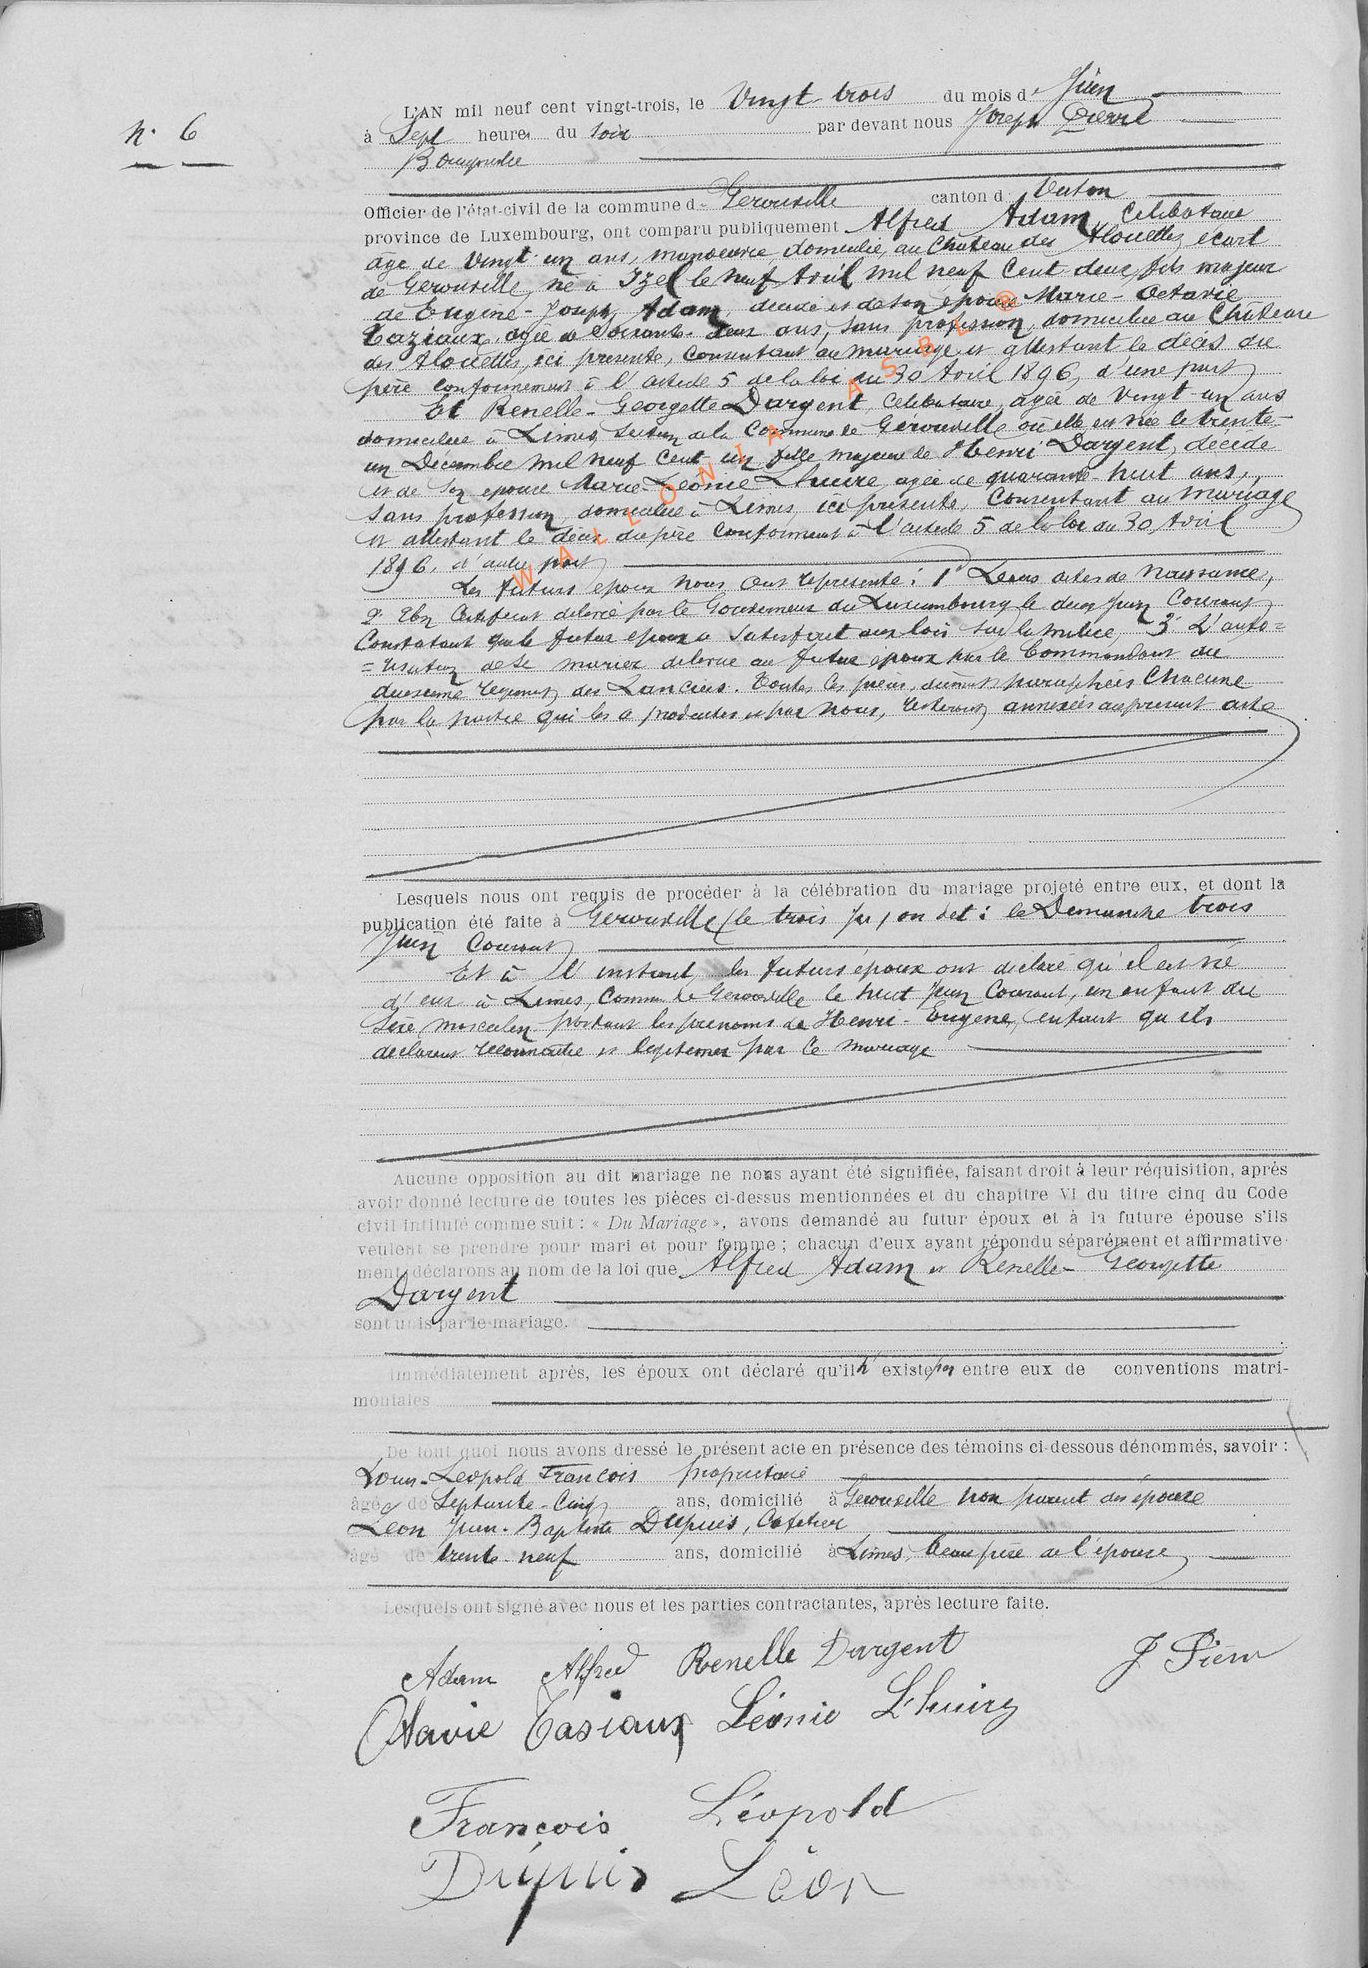 L'AN mil neuf cent vingt-trois, le Vingt trois du mois d Juin
n. 6
à Sept heures du soir par devant nous Joseph Pierre
Bourgmestre
Officier de l'état-civil de la commune de Gerouville canton d Virton
province de Luxembourg, ont comparu publiquement Alfred Adam, Célibataire
age de Vingt un ans, manoeuvre, domicilié, au Chateau des Alouettes, écart
de Gerouville, né à Izel le neuf Avril mil neuf Cent deux, fils majeur
de Eugène-Joseph Adam, décédé et de son épouse Marie-Octavie
Taziaux, agée de Soixante-deux ans, sans profession, domiciliée au Château
des Alouettes, ici présente, Consentant au mariage et attestant le décès du
père conformément à l'article 5 de la loi du 30 Avril 1896, d'une part
Et Renelle-Georgette Dargent, Celibataire, agée de Vingt-un ans
domiciliée à Limes, Section de la Commune de Gérouville où elle est née le trente-
un Décembre mil neuf Cent un fille majeure de Henri Dargent, décédé
et de son épouse Marie-Léonie Lhuire, agée de quarante-huit ans,
sans profession, domiciliée à Limes, ici présente, Consentant au mariage
et attestant le décès du père conformément à l'article 5 de la loi du 30 Avril
1896, d'autre part
Les futurs époux nous ont représenté: 1° Leurs actes de Naissance,
2° Un Certificat délivré par le Gouverneur du Luxembourg le deux Juin Courant
Constatant que le futur époux a Satisfait aux lois sur la milice, 3° L'auto=
=risation de se marier délivrée au futur époux par le Commandant du
deuxième régiment des Lanciers. Toutes ces pièces, dûment paraphées Chacune
par la partie qui les a produites et par Nous, resteront annexées au présent acte
Lesquels nous ont requis de procéder à la célébration du mariage projeté entre eux, et dont la
publication été faite à Gerouville (le trois Ju, on dit: le Dimanche trois
Juin Courant
Et à l'instant, les futurs époux ont déclaré qu'il est né
d'eux à Limes, Commune de Gerouville le huit Juin Courant, un enfant du
Sexe masculin portant les prénoms de Henri-Eugène, enfant qu'ils
déclarent reconnaître et légitimer par ce mariage
Aucune opposition au dit mariage ne nous ayant été signifiée, faisant droit à leur réquisition, après
avoir donné lecture de toutes les pièces ci-dessus mentionnées et du chapitre VI du titre cinq du Code
civil intitulé comme suit : « Du Mariage », avons demandé au futur époux et à la future épouse s'ils
veulent se prendre pour mari et pour femme ; chacun d'eux ayant répondu séparément et affirmative-
ment, déclarons au nom de la loi que Alfred Adam et Renelle-Georgette
Dargent
sont unis par le mariage.
Immédiatement après, les époux ont déclaré qu'il n'existe pas entre eux de conventions matri-
moniales
De tout quoi nous avons dressé le présent acte en présence des témoins ci-dessous dénommés, savoir :
Louis-Léopold François propriétaire
âgé de Septante-Cinq ans, domicilié à Gerouville non parent des époux
Léon Jean-Baptiste Dupuis, Cafetier
âgé de trente-neuf ans, domicilié à Limes, beau père de l'épouse
Lesquels ont signé avec nous et les parties contractantes, après lecture faite.
Adam Alfred Renelle Dargent J Pierre
Octavie Tasiaux Léonie Lhuire
François Léopold
Dupuis Léon
WALLONIA ASBL ®